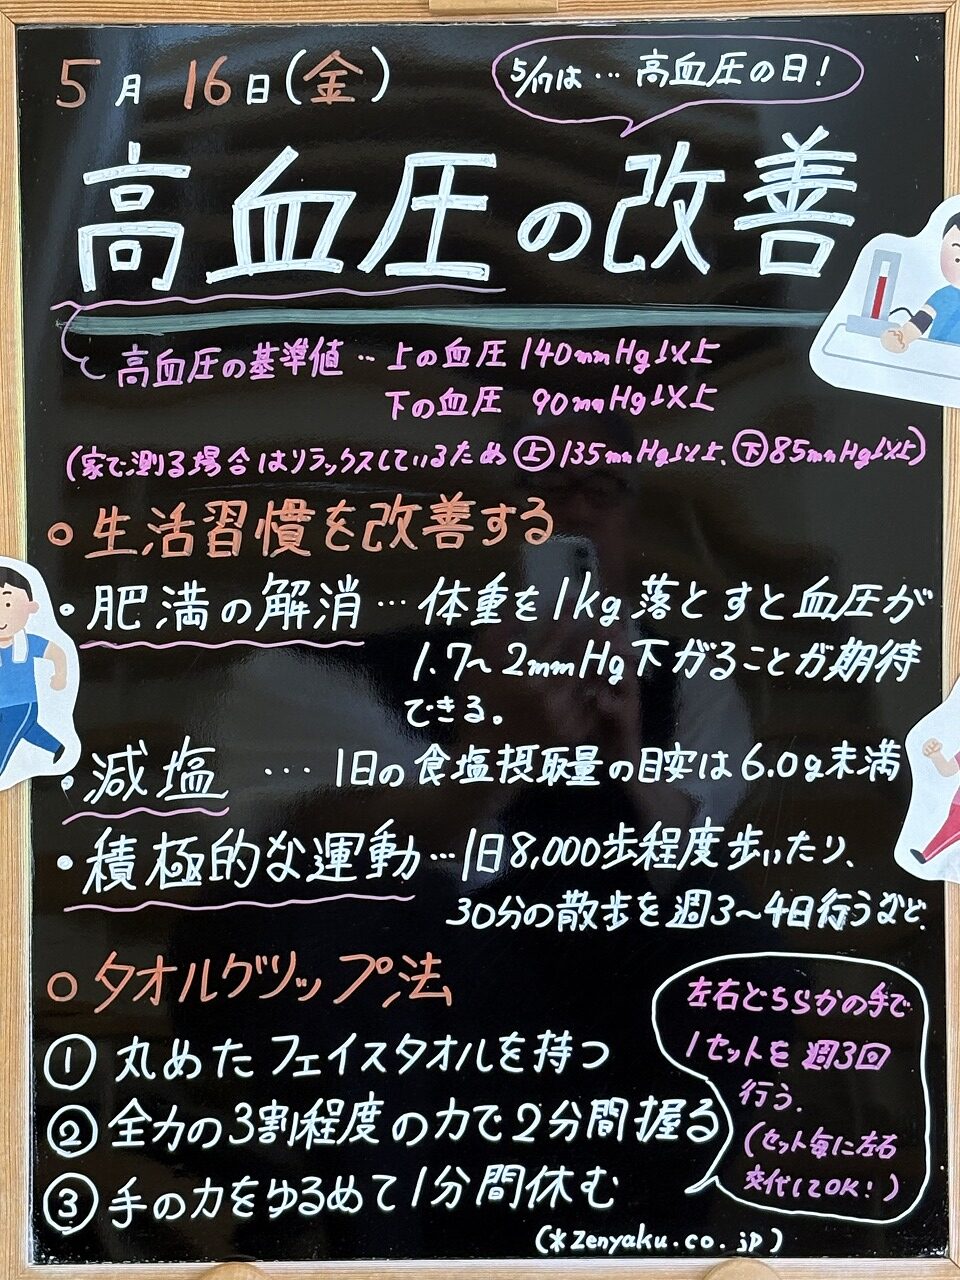 5月16日(金)
5/17は…高血圧の日!
高血圧の改善
高血圧の基準値…上の血圧140mmHg以上
下の血圧 90mmHg以上
(家で測る場合はリラックスしているため㊤135mmHg以上、㊦85mmHg以上)
○生活習慣を改善する
・肥満の解消…体重を1kg落とすと血圧が
1.7〜2mmHg下がることが期待
できる。
・減塩 …1日の食塩摂取量の目安は6.0g未満
・積極的な運動…1日8,000歩程度歩いたり、
30分の散歩を週3〜4日行うなど
○タオルグリップ法
①丸めたフェイスタオルを持つ
②全力の3割程度の力で2分間握る
③手の力をゆるめて1分間休む
左右どちらかの手で
1セットを週3回
行う.
(セット毎に左右
交代してOK!)
(*zenyaku.co.jp)